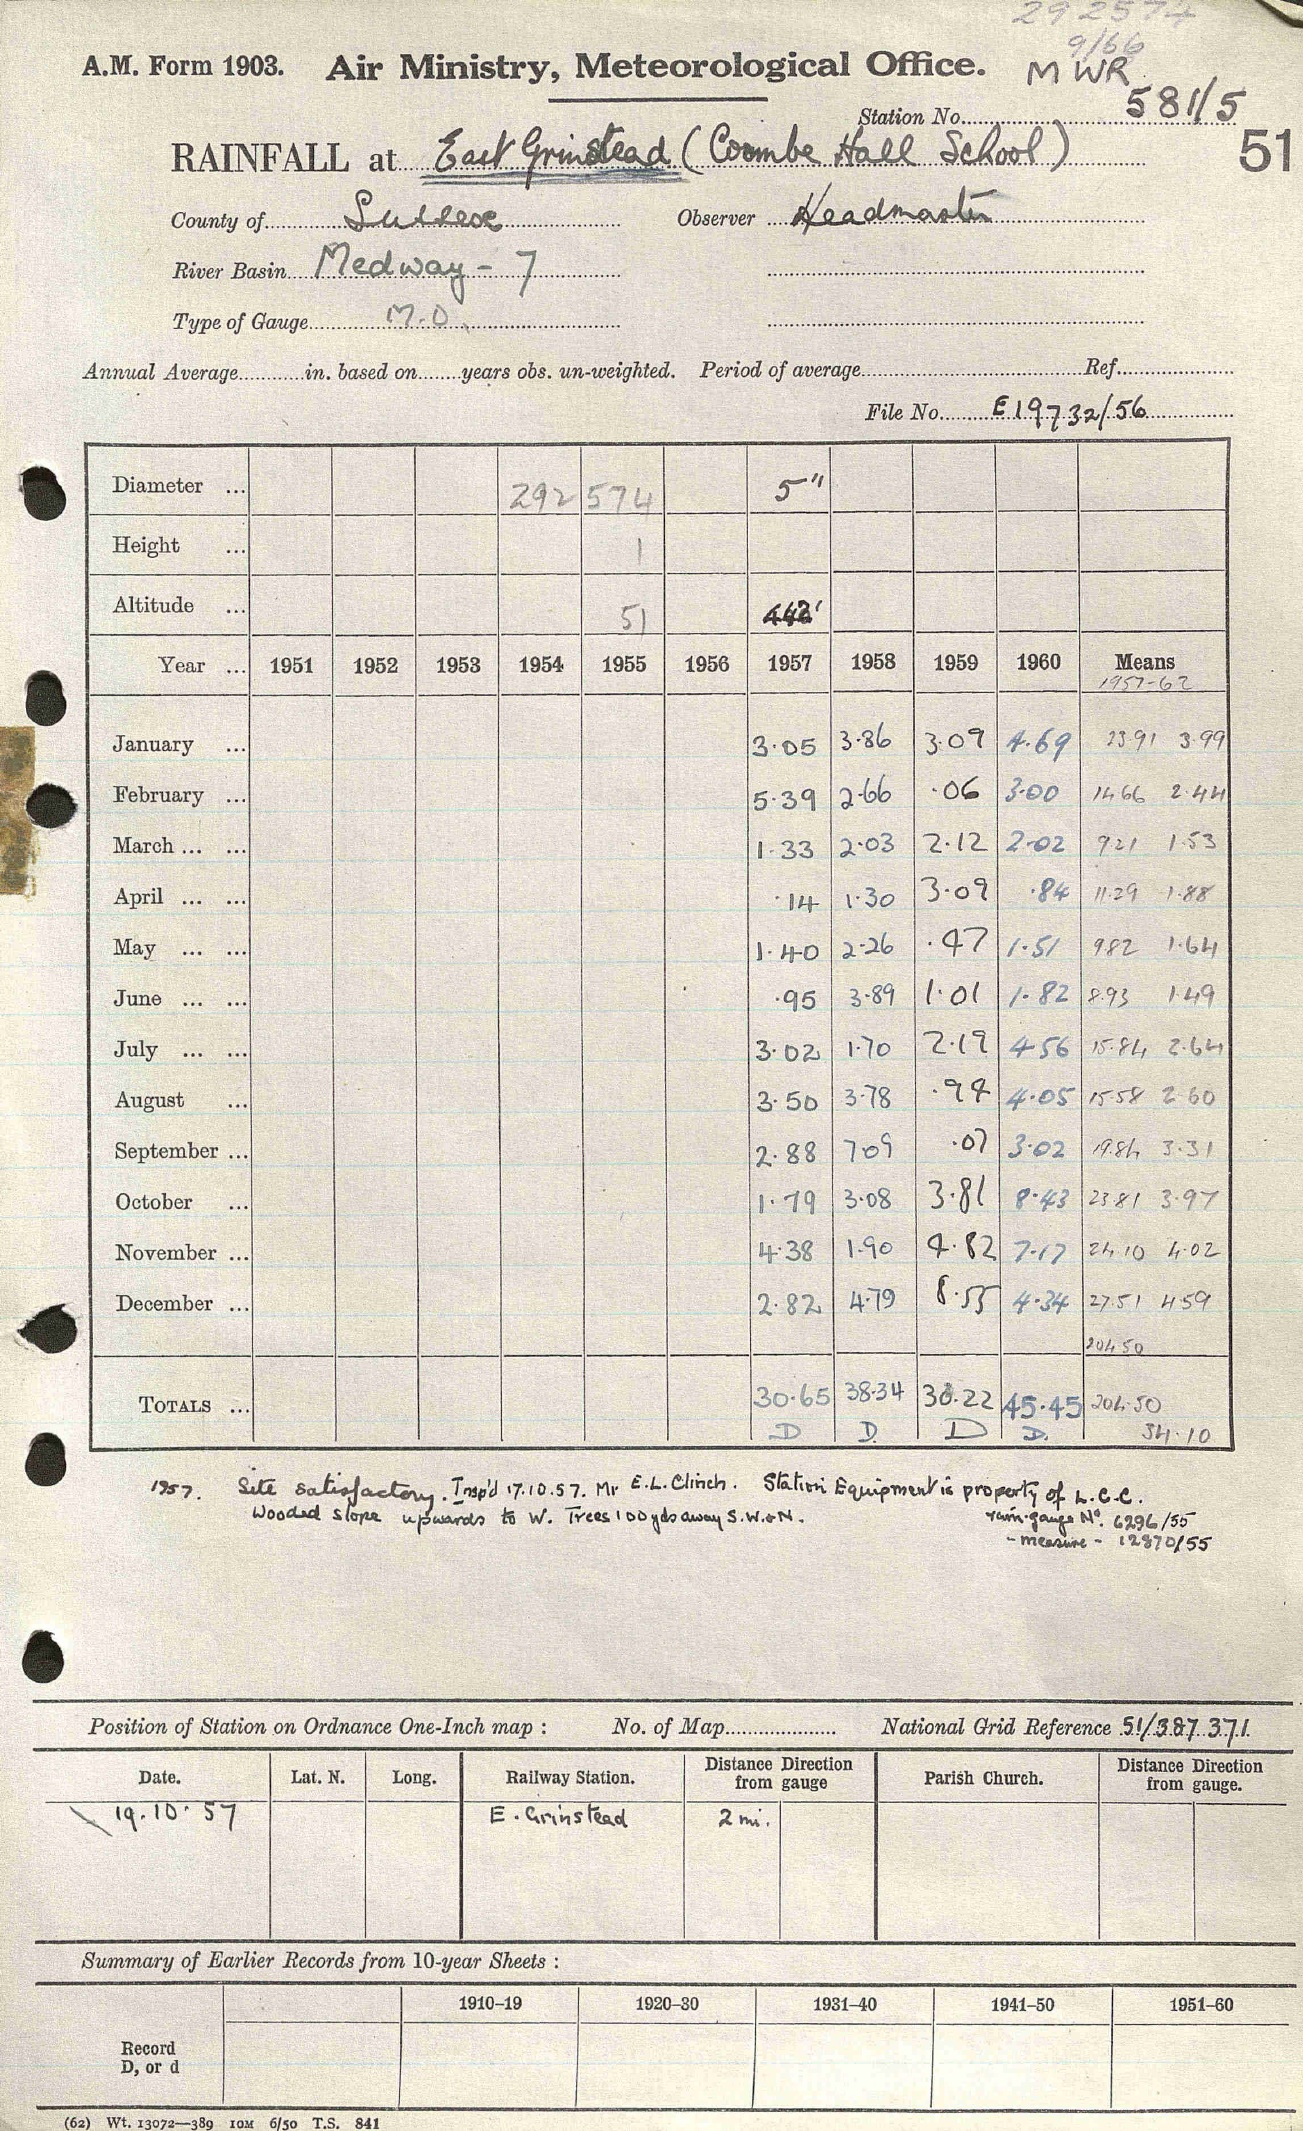 292574
9/66
A.M. Form 1903. Air Ministry, Meteorological Office. MWR
Station No. 581/5
RAINFALL at East Grinstead (Coombe Hall School) 51
County of Sussex Observer Headmaster
River Basin Medway - 7
Type of Gauge M.O.
Annual Average in. based on years obs. un-weighted. Period of average Ref.
File No. E19732/56
Diameter ... 292 574 5"
Height ... 1
Altitude ... 51
Year ... 1951 1952 1953 1954 1955 1956 1957 1958 1959 1960 Means
1957-62
January ... 3.05 3.86 3.09 4.69 23.91 3.99
February ... 5.39 2.66 .06 3.00 14.66 2.44
March ... ... 1.33 2.03 2.12 2.02 9.21 1.53
April ... ... .14 1.30 3.09 .84 11.29 1.88
May ... ... 1.40 2.26 .47 1.51 9.82 1.64
June ... ... .95 3.89 1.01 1.82 8.93 1.49
July ... ... 3.02 1.70 2.19 4.56 15.84 2.64
August ... 3.50 3.78 .94 4.05 15.58 2.60
September ... 2.88 7.09 .07 3.02 19.84 3.31
October ... 1.79 3.08 3.81 8.43 23.81 3.97
November ... 4.38 1.90 4.82 7.17 24.10 4.02
December ... 2.82 4.79 8.55 4.34 27.51 4.59
204.50
TOTALS ... 30.65 38.34 30.22 45.45 204.50
D D. D D. 34.10
1957. Site satisfactory. Insp'd 17.10.57. Mr E.L. Clinch. Station Equipment is property of L.C.C.
Wooded slope upwards to W. Trees 100 yds away S.W. & N. rain-gauge No. 6296/55
- measure - 12870/55
Position of Station on Ordnance One-Inch map : No. of Map National Grid Reference 51/387 371
Date. Lat. N. Long. Railway Station. Distance from gauge Direction Parish Church. Distance from gauge. Direction
19.10.57 E. Grinstead 2 mi.
Summary of Earlier Records from 10-year Sheets :
1910–19 1920–30 1931–40 1941–50 1951–60
Record
D, or d
(62) Wt. 13072—389 10M 6/50 T.S. 841